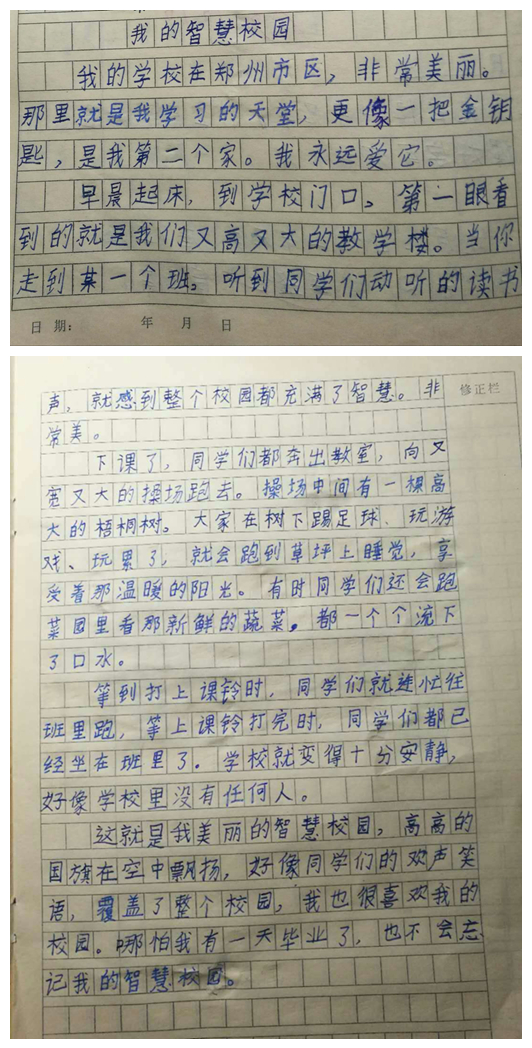 我的智慧校园
我的学校在郑州市区，非常美丽。
那里就是我学习的天堂，更像一把金钥
匙，是我第二个家。我永远爱它。
早晨起床，到学校门口。第一眼看
到的就是我们又高又大的教学楼。当你
走到某一个班。听到同学们动听的读书
日 期： 年 月 日
声，就感到整个校园都充满了智慧。非
修正栏
常美。
下课了，同学们都奔出教室，向又
宽又大的操场跑去。操场中间有一棵高
大的梧桐树。大家在树下踢足球、玩游
戏、玩累了，就会跑到草坪上睡觉，享
受着那温暖的阳光。有时同学们还会跑
菜园里看那新鲜的蔬菜，都一个个流下
了口水。
等到打上课铃时，同学们就连忙往
班里跑，等上课铃打完时，同学们都已
经坐在班里了。学校就变得十分安静，
好像学校里没有任何人。
这就是我美丽的智慧校园，高高的
国旗在空中飘扬，好像同学们的欢声笑
语，覆盖了整个校园，我也很喜欢我的
校园。哪怕我有一天毕业了，也不会忘
记我的智慧校园。